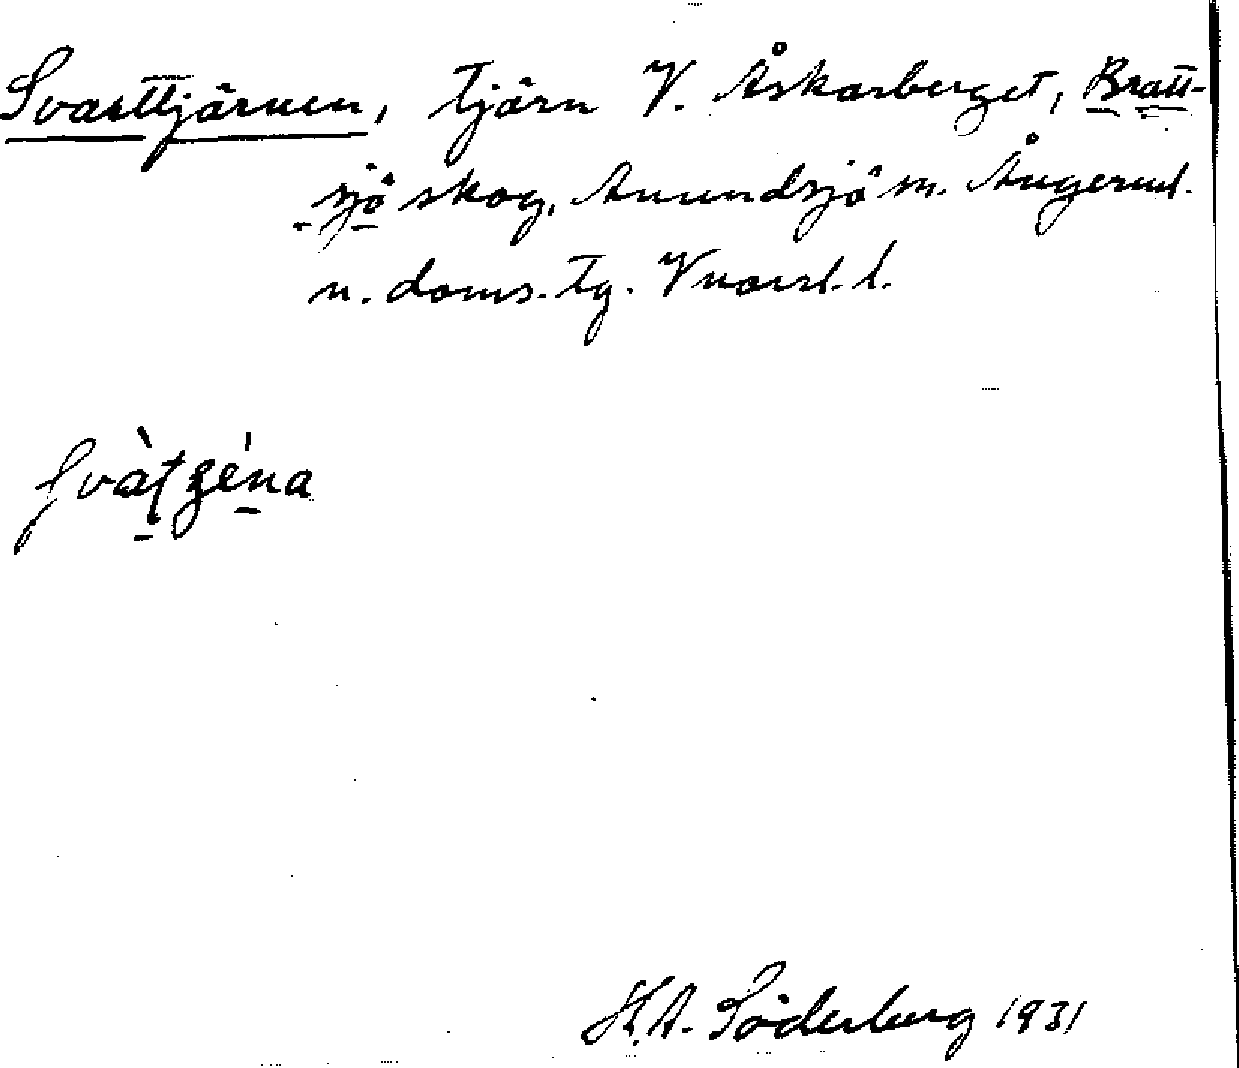 Svarttjärnen, tjärn V. Åskarsberget, Bratt-
sjö skog, Anundsjö sn. Ångerml.
n. doms. tg. Vnorrl. l.
H.A. Söderberg 1931